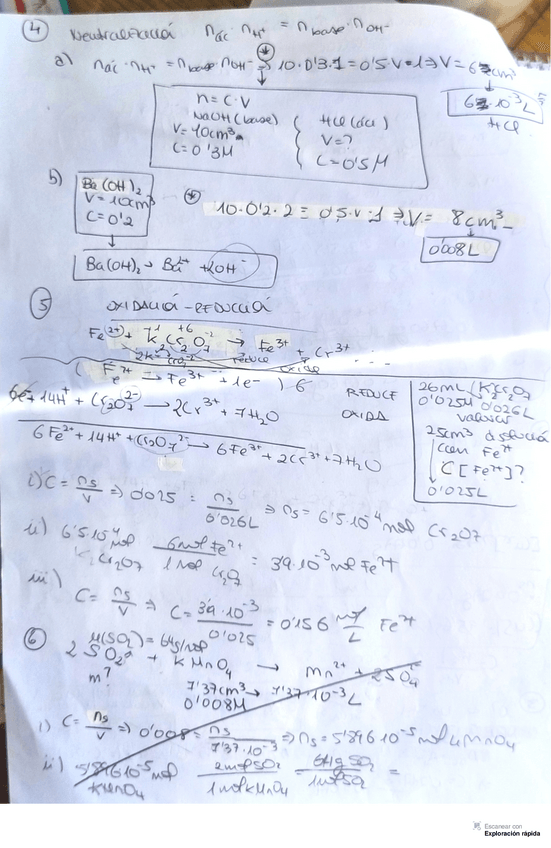 4 Neutralizació n ác · n H⁺ = n base · n OH⁻
a) n ác · n H⁺ = n base · n OH⁻ ⇒ 10·0'3·1 = 0'5·V·1 ⇒ V = 6 cm³
6·10⁻³ L
HCl
n = C·V
NaOH (base) HCl (àcid)
V = 10cm³ V = ?
C = 0'3M C = 0'5M
b) Ba(OH)₂
V = 10cm³
C = 0'2
10·0'2·2 = 0'5·V·1 ⇒ V = 8cm³
0'008 L
Ba(OH)₂ → Ba²⁺ + 2OH⁻
5 OXIDACIÓ-REDUCCIÓ
Fe²⁺ + K₂Cr₂O₇ → Fe³⁺ + Cr³⁺
reduce oxida
(Fe²⁺ → Fe³⁺ + 1e⁻) 6 REDUCE
6e⁻ + 14H⁺ + Cr₂O₇²⁻ → 2Cr³⁺ + 7H₂O OXIDA
6Fe²⁺ + 14H⁺ + Cr₂O₇²⁻ → 6Fe³⁺ + 2Cr³⁺ + 7H₂O
26mL K₂Cr₂O₇
0'025M 0'026L
25cm³ dissolució
Fe²⁺
C [Fe²⁺]?
0'025L
i) C = ns/V ⇒ 0'025 = ns/0'026L ⇒ ns = 6'5·10⁻⁴ mol Cr₂O₇
ii) 6'5·10⁻⁴ mol K₂Cr₂O₇ 6 mol Fe²⁺/1 mol Cr₂O₇ = 3'9·10⁻³ mol Fe²⁺
iii) C = ns/V ⇒ C = 3'9·10⁻³/0'025 = 0'156 mol/L Fe²⁺
6 M(SO₂) = 64g/mol
2SO₂ + KMnO₄ → Mn²⁺ + 2SO₄
m? 7'37cm³ → 7'37·10⁻³ L
0'008M
i) C = ns/V ⇒ 0'008 = ns/7'37·10⁻³ ⇒ ns = 5'896·10⁻⁵ mol KMnO₄
ii) 5'896·10⁻⁵ mol KMnO₄ 2mol SO₂/1 mol KMnO₄ = 64g SO₂/1mol SO₂ =
Escanear con
Exploración rápida